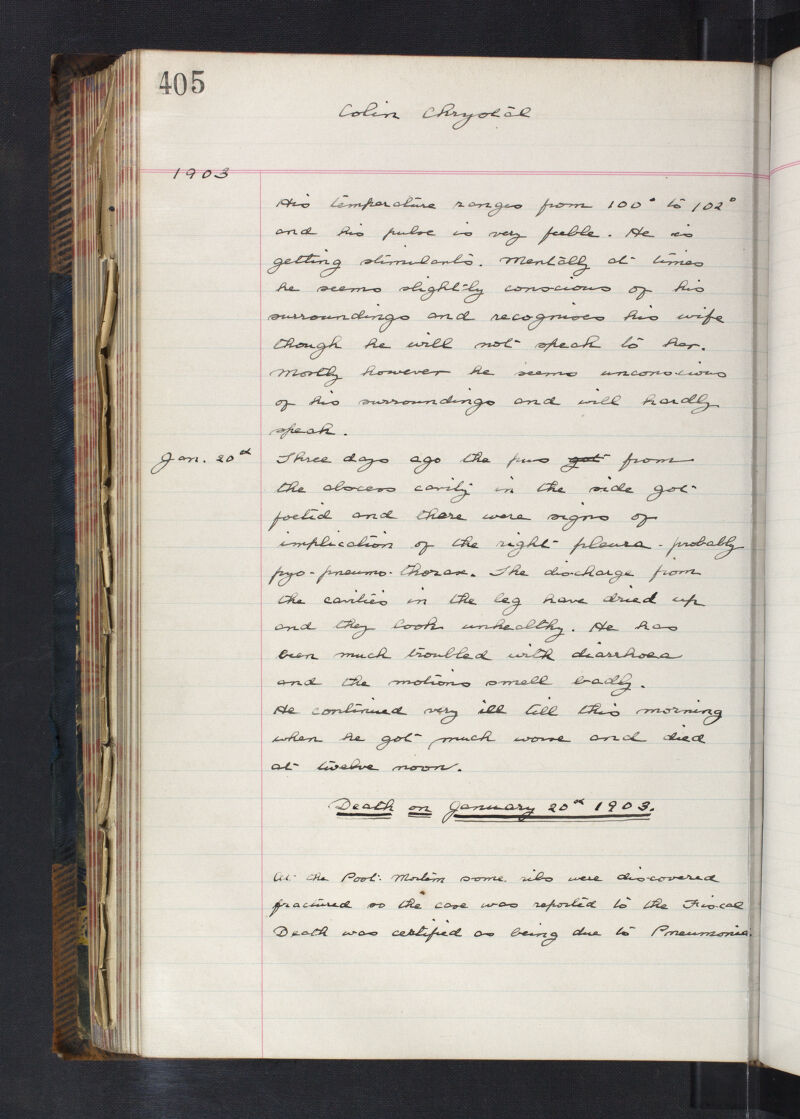 405
Colin Chrystal
1903
His temperature ranges from 100° to 102°
and his pulse is very feeble. He is
getting stimulants. Mentally at times
he seems slightly conscious of his
surroundings and recognises his wife
though he will not speak to her.
Mostly however he seems unconscious
of his surroundings and will hardly
speak.
Jan. 20th Three days ago the pus got from
the abscess cavity in the side got
foetid and there were signs of
implication of the right pleura - probably
pyo-pneumo-thorax. The discharge from
the cavities in the leg have dried up
and they look unhealthy. He has
been much troubled with diarrhoea
and the motions smell badly.
He continued very ill till this morning
when he got much worse and died
at twelve noon.
Death on January 20th 1903.
At the Post. Mortem some ribs were discovered
fractured so the case was reported to the Fiscal
Death was certified as being due to Pneumonia.